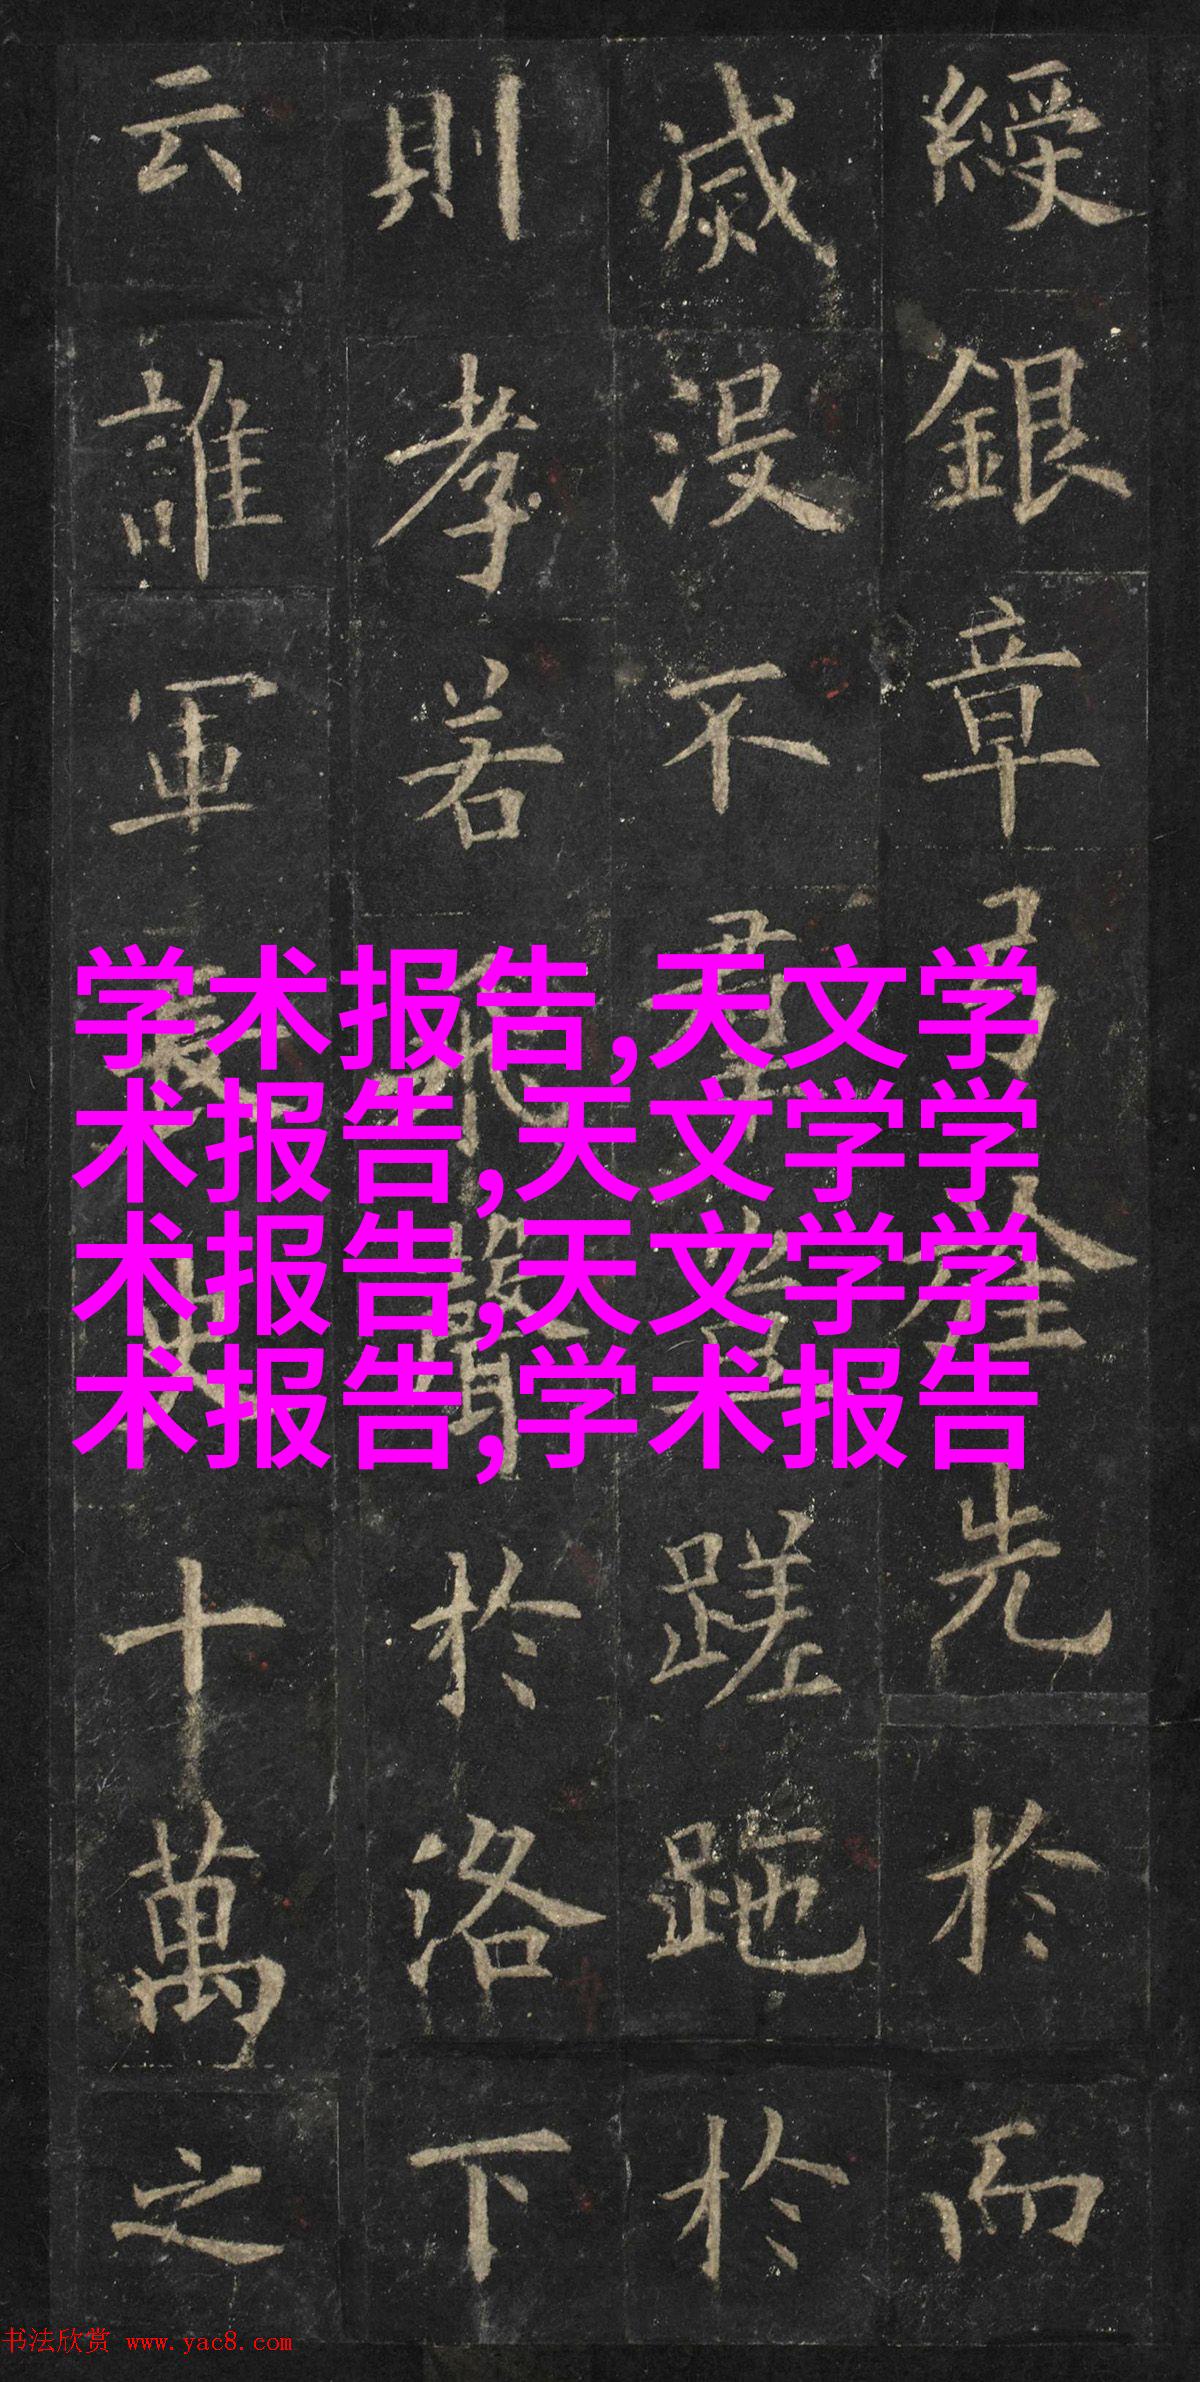 綬銀章先於而
滅没不羣蹉跎於
則孝若於洛下
云誰軍十萬之
学术报告,天文学
术报告,天文学学
术报告,天文学学
术报告,学术报告
书法欣赏 www.yac8.com